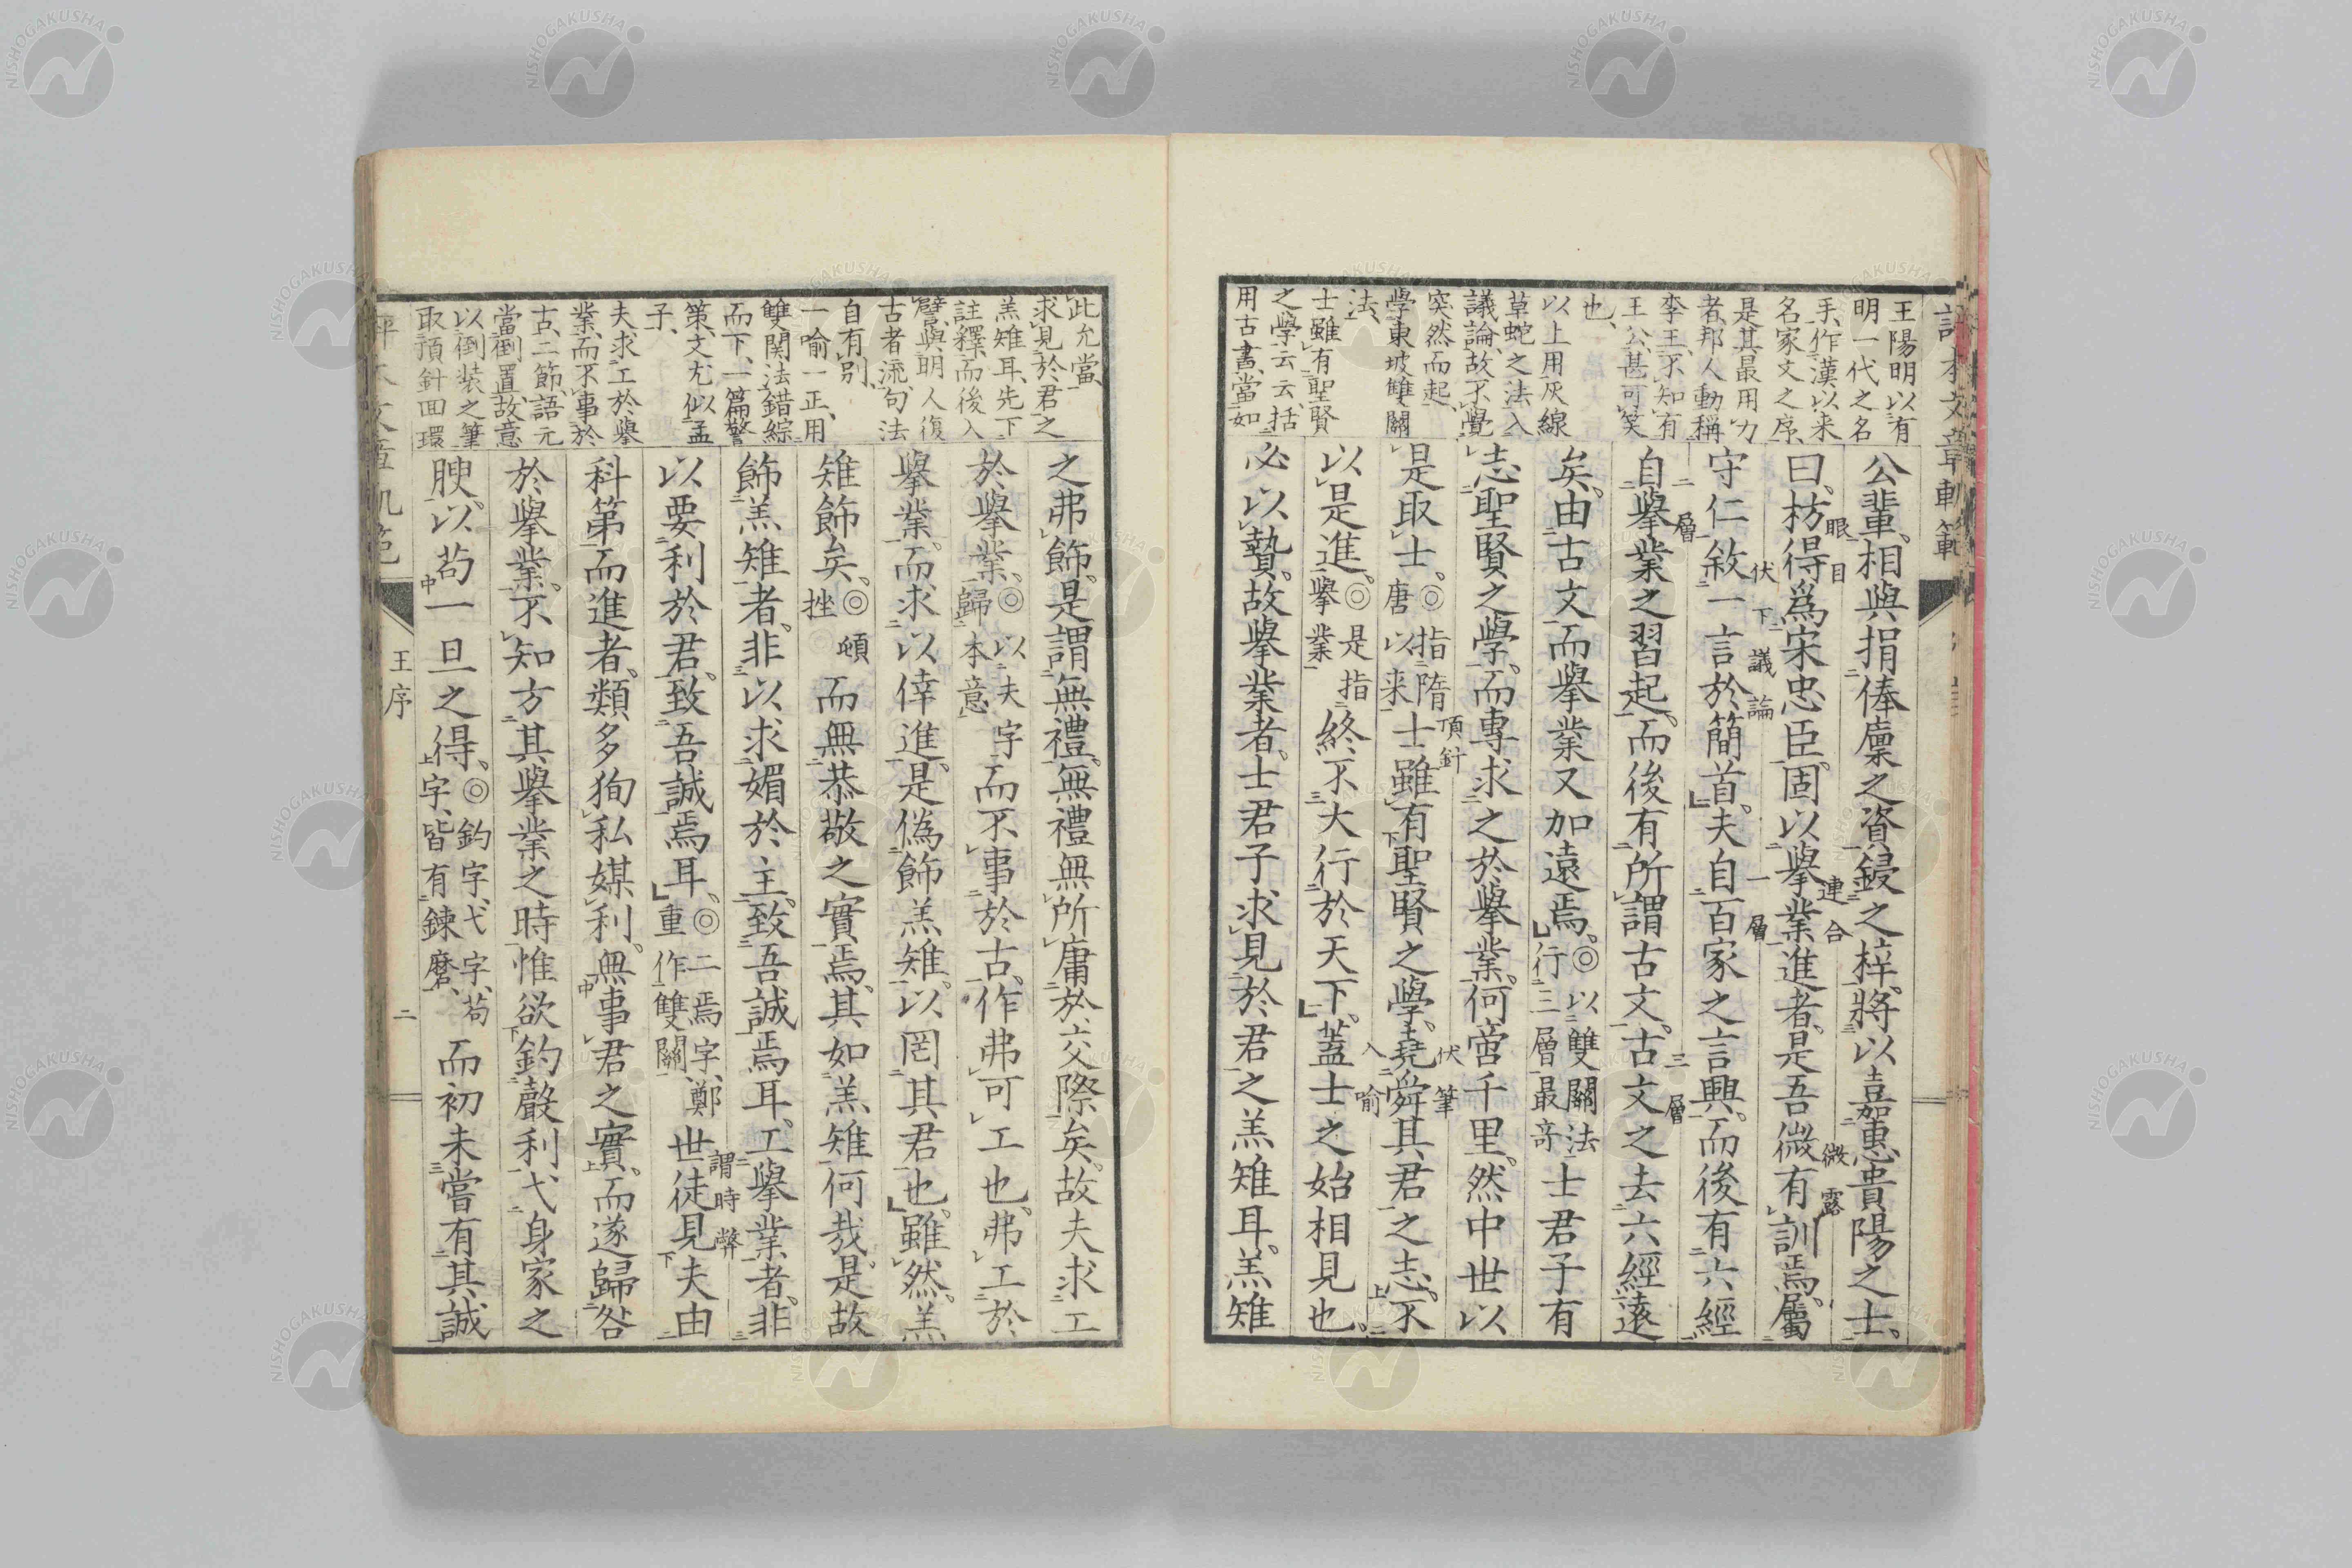 王陽明以有
明一代之名
手作漢以来
名家文之序、
是其最用力
者、邦人動稱
李王、不知有
王公、甚可笑
也、
以上用灰線
草蛇之法入
議論、故不覺
突然而起、
學東坡雙關
法、
士雖有聖賢
之學云云、括
用古書當如
公輩、相與捐俸廩之資、鋟之梓、將以嘉惠貴陽之士、
曰、枋得爲宋忠臣、固以擧業進者、是吾微有訓焉、屬
眼目
連合
微露
守仁敘一言於簡首、夫自百家之言興、而後有六經
伏下議論
一層
自擧業之習起、而後有所謂古文、古文之去六經遠
二層
三層
矣、由古文而擧業又加遠焉、◎以雙關法行三層最奇士君子有
志聖賢之學、而專求之於擧業、何啻千里、然中世以
是取士、◎指隋唐以来士雖有聖賢之學、堯舜其君之志、不
頂針
伏筆
以是進、◎是指擧業終不大行於天下、蓋士之始相見也、
入喻
必以贄、故擧業者、士君子求見於君之羔雉耳、羔雉
此允當、
求見於君之
羔雉耳、先下
註釋、而後入
譬、與明人復
古者流、句法
自有別、
一喻一正、用
雙関法錯綜
而下、一篇警
策、文尤似孟
子、
夫求工於擧
業、而不事於
古、二節、語元
當倒置、故意
以倒装之筆
取預針回環
之弗飾、是謂無禮、無禮無所庸於交際矣、故夫求工
於擧業、◎以夫字歸本意而不事於古、作弗可工也、弗工於
擧業、而求以倖進、是僞飾羔雉、以罔其君也、雖然、羔
雉飾矣、◎頓挫而無恭敬之實焉、其如羔雉何哉、是故
飾羔雉者、非以求媚於主、致吾誠焉耳、工擧業者、非
以要利於君、致吾誠焉耳、◎二焉字、鄭重作雙關、世徒見夫由
謂時弊
科第而進者、類多狥私媒利、無事君之實、而遂歸咎
於擧業、不知方其擧業之時、惟欲釣聲利弋身家之
腴、以苟一旦之得、◎釣字、弋字、苟字、皆有鍊磨、而初未嘗有其誠
王序
二